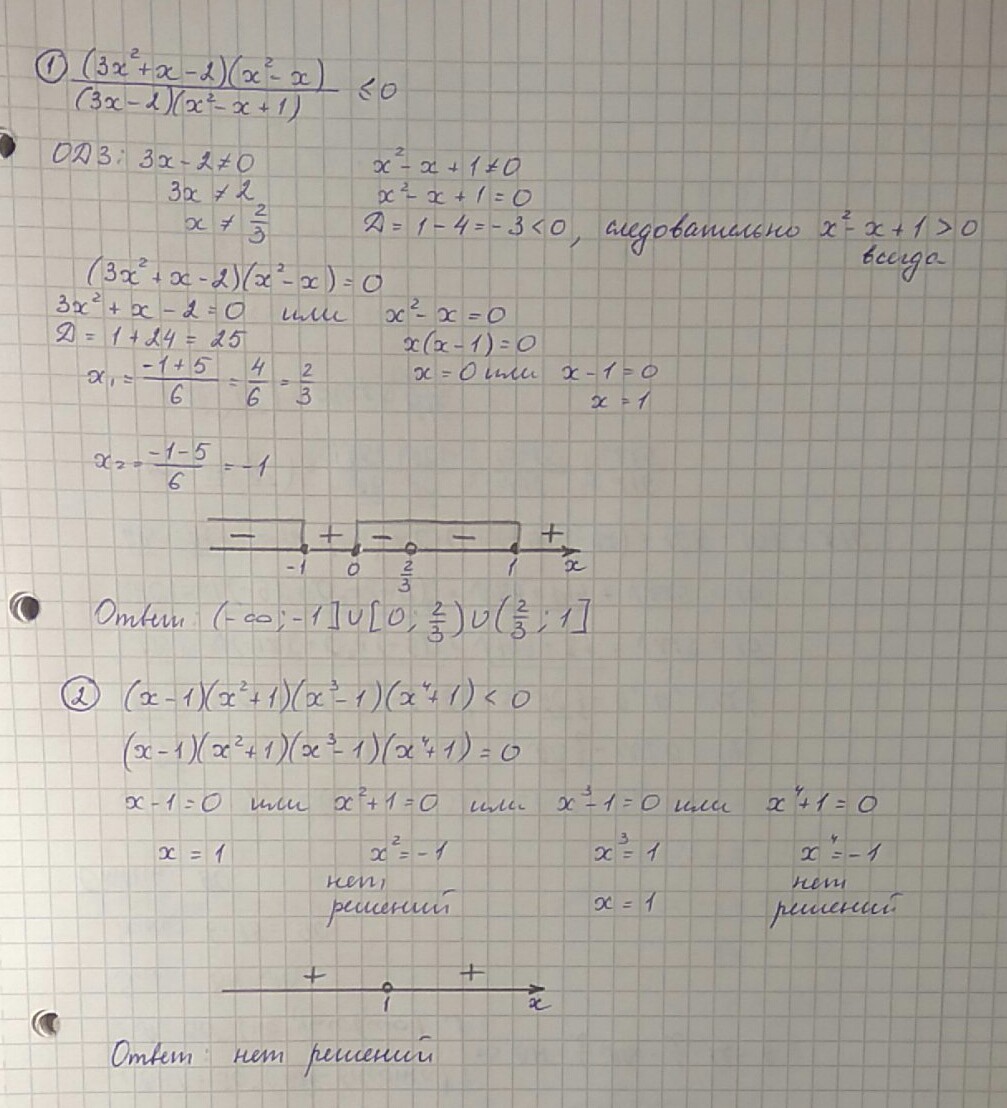 ① (3x²+x-2)(x²-x)/(3x-2)(x²-x+1) ≤0
ОДЗ: 3x-2≠0 x²-x+1≠0
3x≠2 x²-x+1=0
x≠2/3 Д=1-4=-3<0, следовательно x²-x+1>0
всегда
(3x²+x-2)(x²-x)=0
3x²+x-2=0 или x²-x=0
Д=1+24=25 x(x-1)=0
x₁=(-1+5)/6=4/6=2/3 x=0 или x-1=0
x=1
x₂=(-1-5)/6=-1
- + - - +
-1 0 2/3 1 x
Ответ: (-∞;-1]∪[0;2/3)∪(2/3;1]
② (x-1)(x²+1)(x³-1)(x⁴+1)<0
(x-1)(x²+1)(x³-1)(x⁴+1)=0
x-1=0 или x²+1=0 или x³-1=0 или x⁴+1=0
x=1 x²=-1 x³=1 x⁴=-1
нет нет
решений x=1 решений
+ +
1 x
Ответ: нет решений